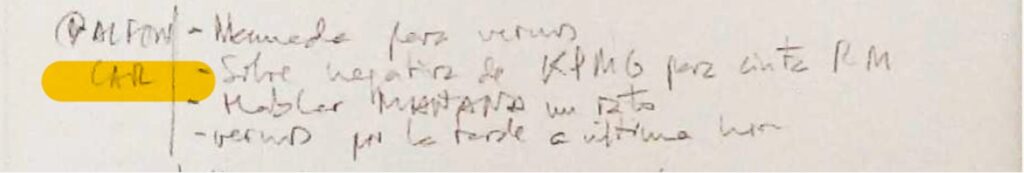 ALFON - Me manda para vernos
CAR - Sobre negativa de KPMG para cinta RM
- Hablar MAÑANA un rato
- vernos por la tarde a última hora